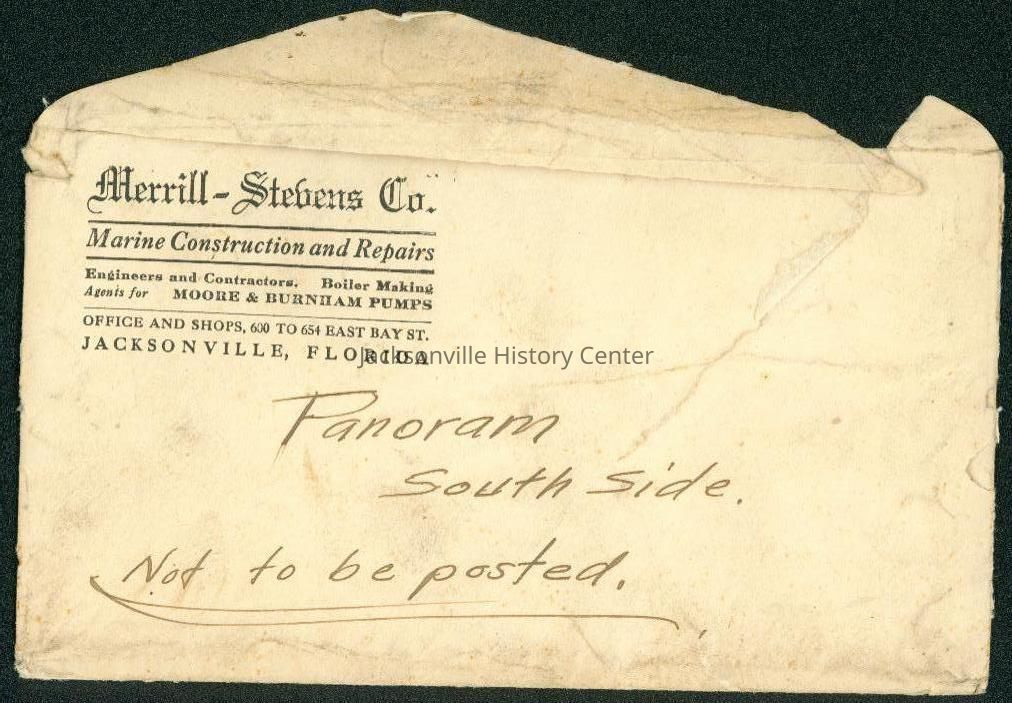 Merrill-Stevens Co.
Marine Construction and Repairs
Engineers and Contractors. Boiler Making
Agents for MOORE & BURNHAM PUMPS
OFFICE AND SHOPS, 600 TO 654 EAST BAY ST.
JACKSONVILLE, FLORIDA
Jacksonville History Center
Panoram
South Side.
Not to be posted.